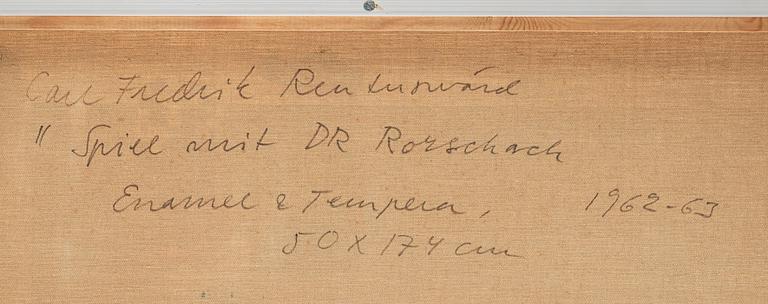 Carl Fredrik Reutersvärd
" Spiel mit DR Rorschach
Enamel & Tempera, 1962-63
50 X 174 cm